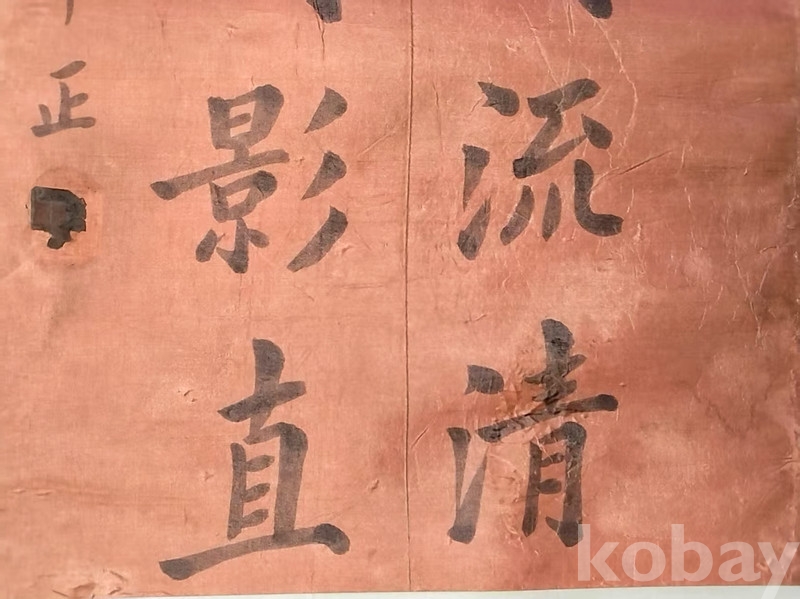 流清
影直
正
kobay